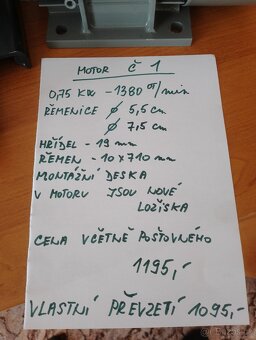 MOTOR Č 1
0,75 KW - 1380 OT/min
ŘEMENICE ⌀ 5,5 cm
⌀ 7,5 cm
HŘÍDEL - 19 mm
ŘEMEN - 10x710 mm
MONTÁŽNÍ DESKA
V MOTORU JSOU NOVÉ
LOŽISKA
CENA VČETNĚ POŠTOVNÉHO
1195,-
VLASTNÍ PŘEVZETÍ 1095,-